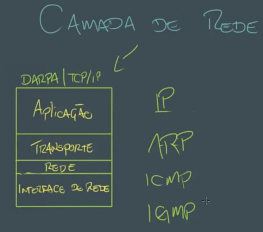 CAMADA DE REDE
DARPA | TCP/IP
APLICAÇÃO
TRANSPORTE
REDE
INTERFACE DE REDE
IP
ARP
ICMP
IGMP